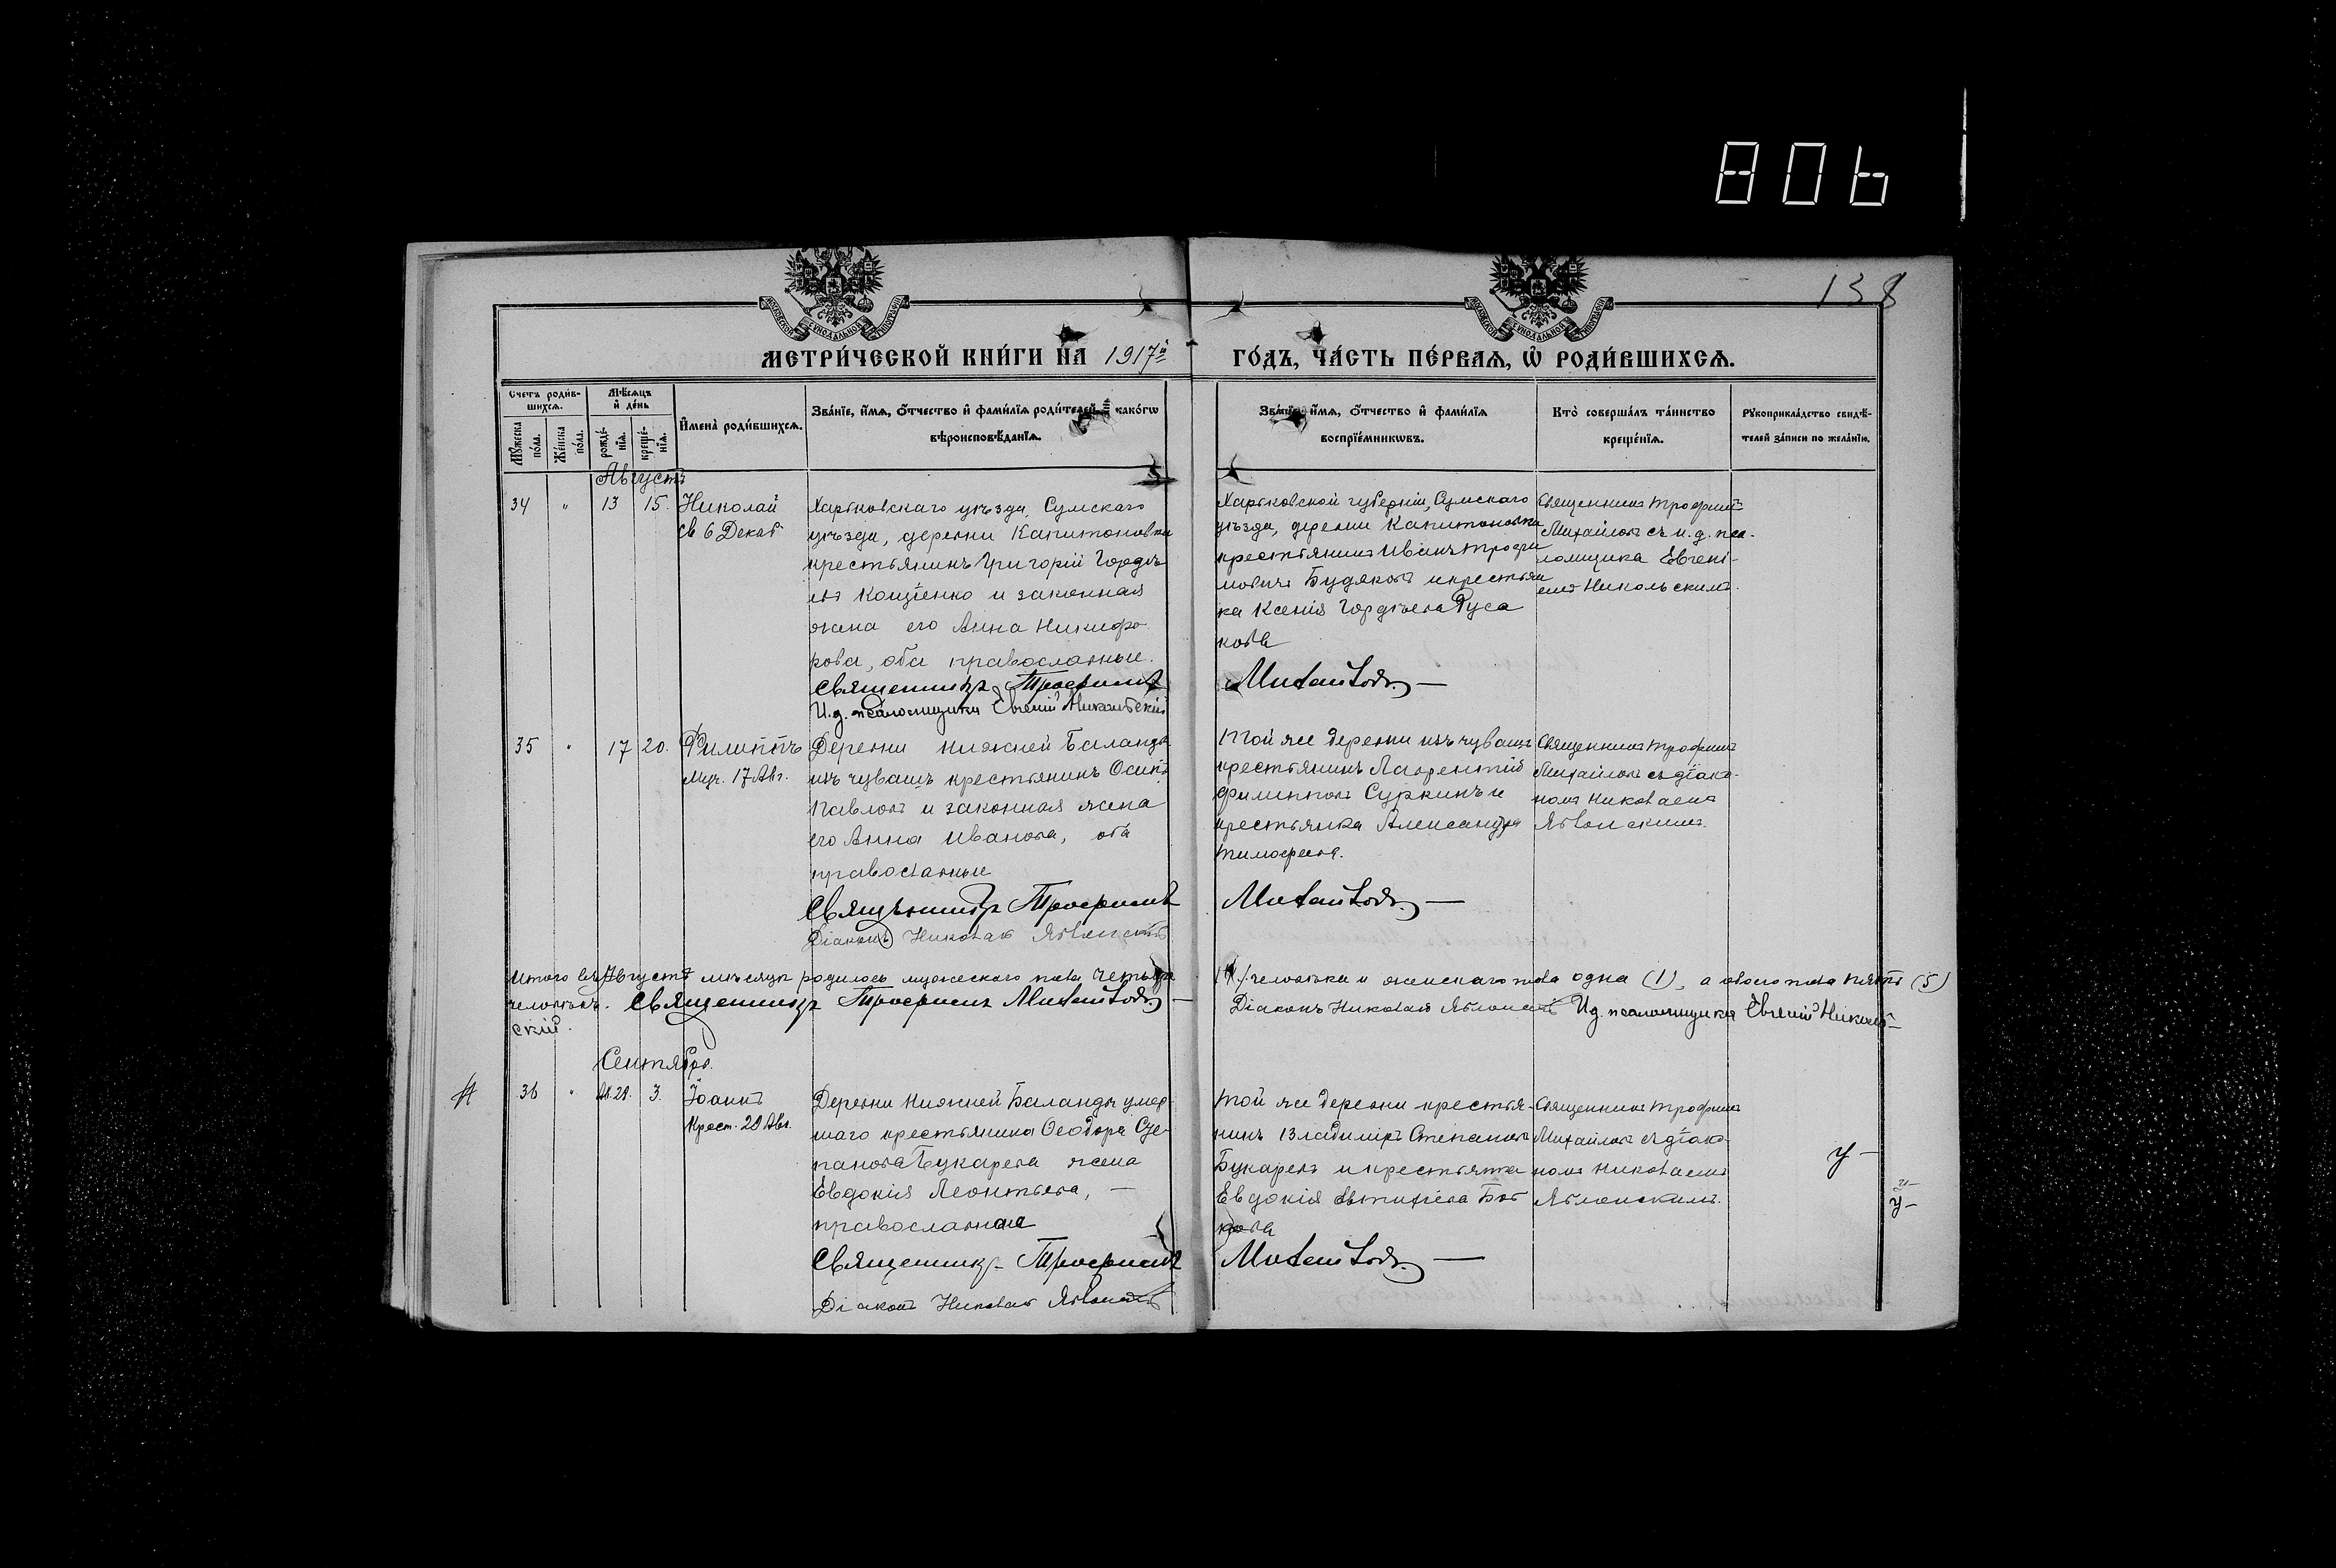 806
138
МОСКОВСКОЙ СѴНОДАЛЬНОЙ ТИПОГРАФІИ
МОСКОВСКОЙ СѴНОДАЛЬНОЙ ТИПОГРАФІИ
МЕТРИ́ЧЕСКОЙ КНИ́ГИ НА 1917й ГО́ДЪ, ЧА́СТЬ ПЕ́РВАЯ, Ѡ҆ РОДИ́ВШИХСЯ.
Счетъ родив-
шихся.
Мѣсяцъ
и҆ де́нь
Мꙋжеска
по́ла.
Же́нска
по́ла.
рожде́-
нїя.
креще́-
нїя.
И҆мена̀ роди́вшихся.
Зва́нїе, и҆́мя, ѻ҆́тчество и҆ фами́лїя роди́телей, и҆ како́гѡ
вѣроисповѣ́данїя.
Зва́нїе, и҆́мя, ѻ҆́тчество и҆ фами́лїя
воспрїе́мникѡвъ.
Кто̀ соверша́лъ та́инство
креще́нїя.
Рꙋкоприкла́дство свидѣ́-
телей за́писи по жела́нїю.
Августъ
34 " 13 15. Николай
св 6 Декаб
Харьковскаго уѣзда, Сумскаго
уѣзда, деревни Капитоновки
крестьянинъ Григорій Гордѣ
евъ Кощіенко и законная
жена его Анна Никифо
рова, оба православные.
Священникъ Трофимъ
И.д. псаломщика Евгеній Никольскій
Харьковской губерніи, Сумскаго
уѣзда, деревни Капитоновки
крестьянинъ Иванъ Трофи
мовичъ Будяковъ и крестьян
ка Ксенія Гордѣева Руса
кова
Михайловъ. —
Священникъ Трофимъ
Михайловъ съ и. д. пса-
ломщика Евгені-
емъ Никольскимъ.
35 " 17 20. Филиппъ
Муч. 17 Авг.
Деревни Нижней Баланды
изъ чувашъ крестьянинъ Осипъ
Павловъ и законная жена
его Анна Иванова, оба
православные
Священникъ Трофимъ
Діаконъ Николай Яблонскій
Той же деревни изъ чувашъ
крестьянинъ Лаврентій
Филипповъ Суркинъ и
крестьянка Александра
Тимофеева.
Михайловъ. —
Священникъ Трофимъ
Михайловъ съ діако-
номъ Николаемъ
Яблонскимъ.
Итого въ Августѣ мѣсяцѣ родилось мужескаго пола четыре (4) человѣка и женскаго пола одна (1), а обоего пола пять (5)
человѣкъ. Священникъ Трофимъ Михайловъ. — Діаконъ Николай Яблонскій И.д. псаломщика Евгеній Николь-
скій.
Сентябрь.
36 " Ав. 29. 3. Іоаннъ
Крест. 29 Авг.
Деревни Нижней Баланды умер-
шаго крестьянина Ѳеодора Сте-
панова Букарева жена
Евдокія Леонтьева, —
православная
Священникъ Трофимъ
Діаконъ Николай Яблонскій
Той же деревни крестья-
нинъ Владиміръ Степановъ
Букаревъ и крестьянка
Евдокія
кова
Михайловъ. —
Священникъ Трофимъ
Михайловъ съ діако-
номъ Николаемъ
Яблонскимъ.
у —
у —